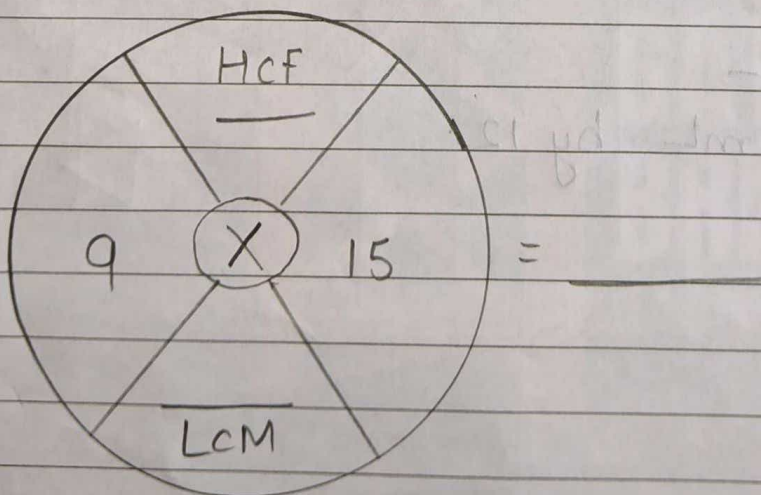 HCF
9 X 15 =
LCM